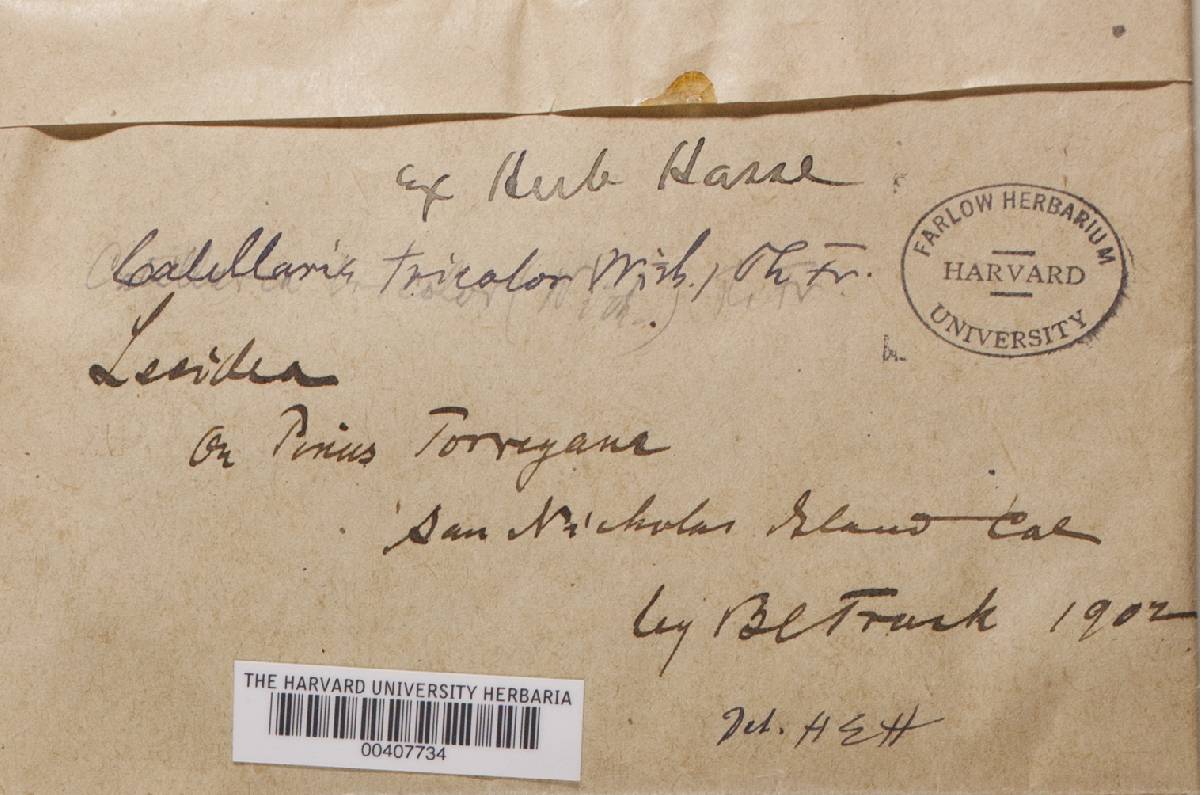 ex Herb Hasse
Catillaria tricolor With., Th. Fr.
Lecidea
On Pinus Torreyana
San Nicholas Island Cal
by BL Trask 1902
Det. H E H
FARLOW HERBARIUM
HARVARD
UNIVERSITY
THE HARVARD UNIVERSITY HERBARIA
00407734